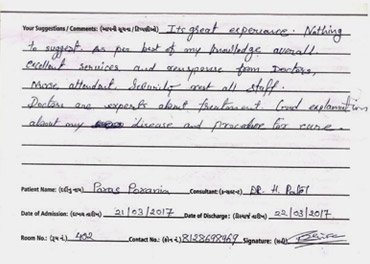 Your Suggestions / Comments: (આપની સૂચના / ટિપ્પણીઓ) Its great experiance. Nothing
to suggest as per best of my knowledge overall
excellent services and response from Doctors,
Nurse, attendant, Security rest all staff.
Doctors are experts about treatment. Good explanation
about my disease and procedure for cure.
Patient Name: Paras Pozania Consultant: DR. H. Patel
Date of Admission: 21/03/2017 Date of Discharge: 22/03/2017
Room No.: 402 Contact No.: 8128698969 Signature: